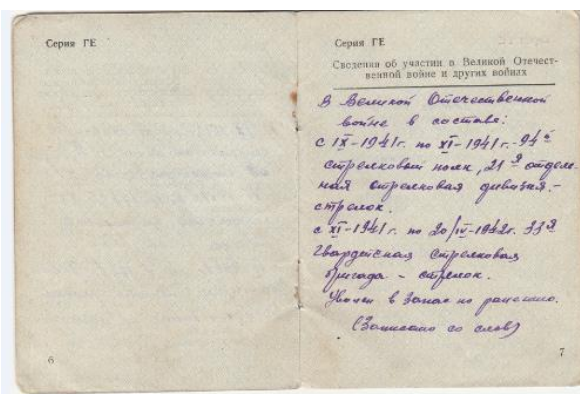 Серия ГЕ
6
Серия ГЕ
Сведения об участии в Великой Отечест-
венной войне и других войнах
В Великой Отечественной
войне в составе:
с IX-1941г. по XI-1941г.-94й
стрелковый полк, 21я отдель-
ная стрелковая дивизия.-
стрелок.
с XI-1941г. по 20/IV-1942г. 33я
Гвардейская стрелковая
бригада - стрелок.
Уволен в запас по ранению.
(Записано со слов)
7